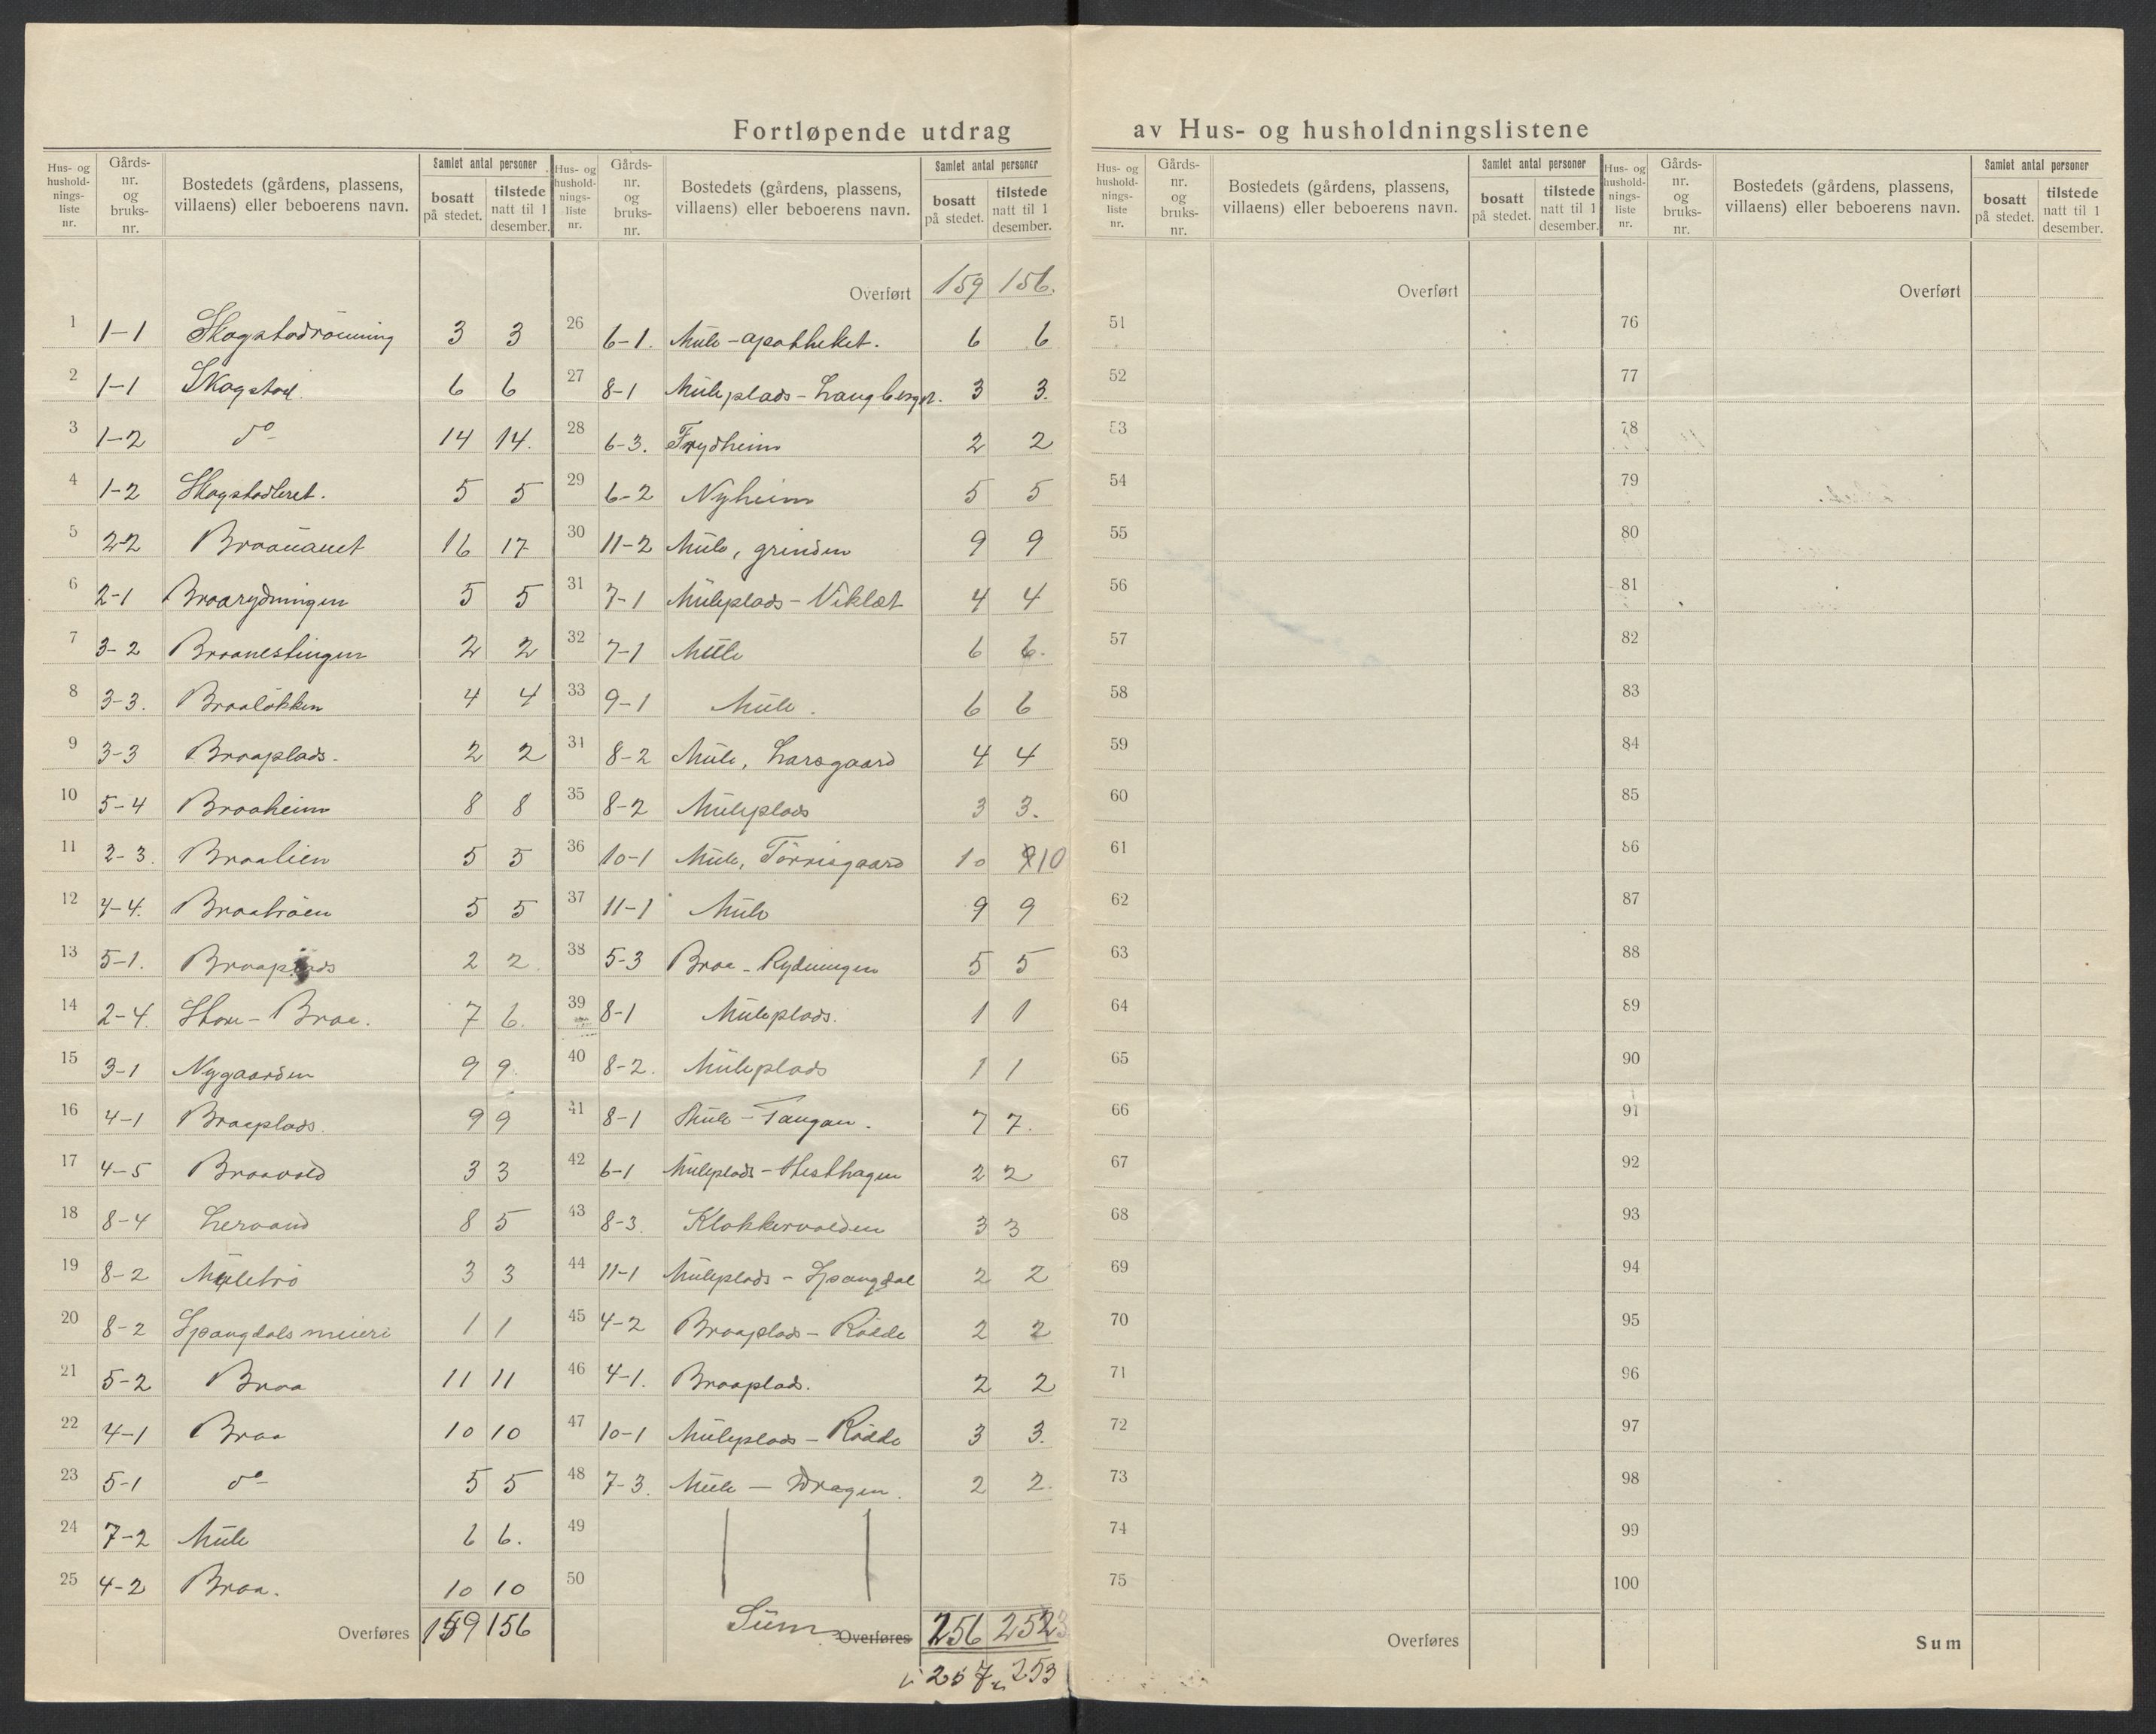 Fortløpende utdrag av Hus- og husholdningslistene
Hus- og hushold-nings-liste nr. Gårds-nr. og bruks-nr. Bostedets (gårdens, plassens, villaens) eller beboerens navn. Samlet antal personer bosatt på stedet. tilstede natt til 1 desember.
1 1-1 Skogstadrönning 3 3
2 1-1 Skogstad 6 6
3 1-2 do 14 14.
4 1-2 Skogstadleret. 5 5
5 2-2 16 17
6 2-1 Braarydningen 5 5
7 3-2 Braanestingen 2 2
8 3-3. Braalökken 4 4
9 3-3 Braaplads. 2 2
10 5-4 Braaheim 8 8
11 2-3. Braalien 5 5
12 4-4. Braatröen 5 5
13 5-1. Braaplads 2 2.
14 2-4. Store-Braa. 7 6.
15 3-1 Nygaarden 9 9.
16 4-1 Braaplads. 9 9
17 4-5 Braavold 3 3
18 8-4 Lervand 8 5
19 8-2 Mületrö 3 3
20 8-2 Spangdals meieri 1 1
21 5-2 Braa 11 11
22 4-1 Braa 10 10
23 5-1 do 5 5
24 7-2 Müle 6 6.
25 4-2 Braa. 10 10
Overføres 159 156
Hus- og hushold-nings-liste nr. Gårds-nr. og bruks-nr. Bostedets (gårdens, plassens, villaens) eller beboerens navn. Samlet antal personer bosatt på stedet. tilstede natt til 1 desember.
Overført 159 156.
26 6-1. Müle-apotheket. 6 6
27 8-1 Müleplads-Langberget. 3 3.
28 6-3. Frydheim 2 2
29 6-2 Nyheim 5 5
30 11-2 Müle, grinden 9 9
31 7-1 Müleplads-Viklæt 4 4
32 7-1 Müle 6 6.
33 9-1 Müle. 6 6
34 8-2 Müle, Larsgaard 4 4
35 8-2 Müleplads 3 3.
36 10-1 Müle, Törrisgaard 10 9 10
37 11-1 Müle 9 9
38 5-3 Braa-Rydningen 5 5
39 8-1 Müleplads. 1 1
40 8-2. Müleplads 1 1
41 8-1 Müle-Tangan. 7 7.
42 6-1 Müleplads-Hesthagen 2 2
43 8-3. Klokkervolden 3 3
44 11-1 Müleplads-Spangdal 2 2
45 4-2 Braaplads-Rödde 2 2
46 4-1. Braaplads. 2 2
47 10-1 Müleplads-Rödde 3 3.
48 7-3. Müle-Dragen. 2 2.
49
50
Süm Overføres 256 252 3
257 253
Hus- og hushold-nings-liste nr. Gårds-nr. og bruks-nr. Bostedets (gårdens, plassens, villaens) eller beboerens navn. Samlet antal personer bosatt på stedet. tilstede natt til 1 desember.
Overført
51
52
53
54
55
56
57
58
59
60
61
62
63
64
65
66
67
68
69
70
71
72
73
74
75
Overføres
Hus- og hushold-nings-liste nr. Gårds-nr. og bruks-nr. Bostedets (gårdens, plassens, villaens) eller beboerens navn. Samlet antal personer bosatt på stedet. tilstede natt til 1 desember.
Overført
76
77
78
79
80
81
82
83
84
85
86
87
88
89
90
91
92
93
94
95
96
97
98
99
100
Sum